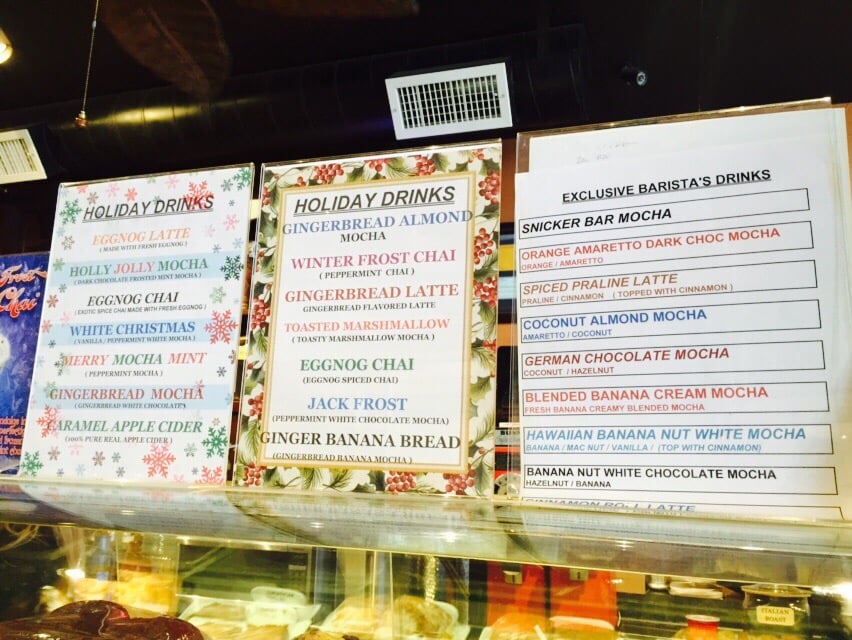 Frost
Chai
HOLIDAY DRINKS
EGGNOG LATTE
( MADE WITH FRESH EGGNOG )
HOLLY JOLLY MOCHA
( DARK CHOCOLATE FROSTED MINT MOCHA )
EGGNOG CHAI
(EXOTIC SPICE CHAI MADE WITH FRESH EGGNOG )
WHITE CHRISTMAS
( VANILLA / PEPPERMINT WHITE MOCHA )
MERRY MOCHA MINT
( PEPPERMINT MOCHA )
GINGERBREAD MOCHA
( GINGERBREAD WHITE CHOCOLATE)
CARAMEL APPLE CIDER
(100% PURE REAL APPLE CIDER )
HOLIDAY DRINKS
GINGERBREAD ALMOND
MOCHA
WINTER FROST CHAI
( PEPPERMINT CHAI )
GINGERBREAD LATTE
GINGERBREAD FLAVORED LATTE
TOASTED MARSHMALLOW
( TOASTY MARSHMALLOW MOCHA )
EGGNOG CHAI
(EGGNOG SPICED CHAI)
JACK FROST
(PEPPERMINT WHITE CHOCOLATE MOCHA)
GINGER BANANA BREAD
(GINGERBREAD BANANA MOCHA )
EXCLUSIVE BARISTA'S DRINKS
SNICKER BAR MOCHA
ORANGE AMARETTO DARK CHOC MOCHA
ORANGE / AMARETTO
SPICED PRALINE LATTE
PRALINE / CINNAMON ( TOPPED WITH CINNAMON )
COCONUT ALMOND MOCHA
AMARETTO / COCONUT
GERMAN CHOCOLATE MOCHA
COCONUT / HAZELNUT
BLENDED BANANA CREAM MOCHA
FRESH BANANA CREAMY BLENDED MOCHA
HAWAIIAN BANANA NUT WHITE MOCHA
BANANA / MAC NUT / VANILLA / (TOP WITH CINNAMON)
BANANA NUT WHITE CHOCOLATE MOCHA
HAZELNUT / BANANA
CINNAMON ROLL LATTE
ITALIAN
ROAST